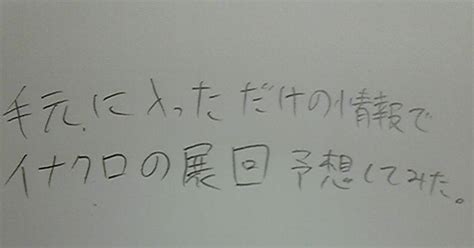 手元に入っただけの情報で
イナクロの展回予想してみた。